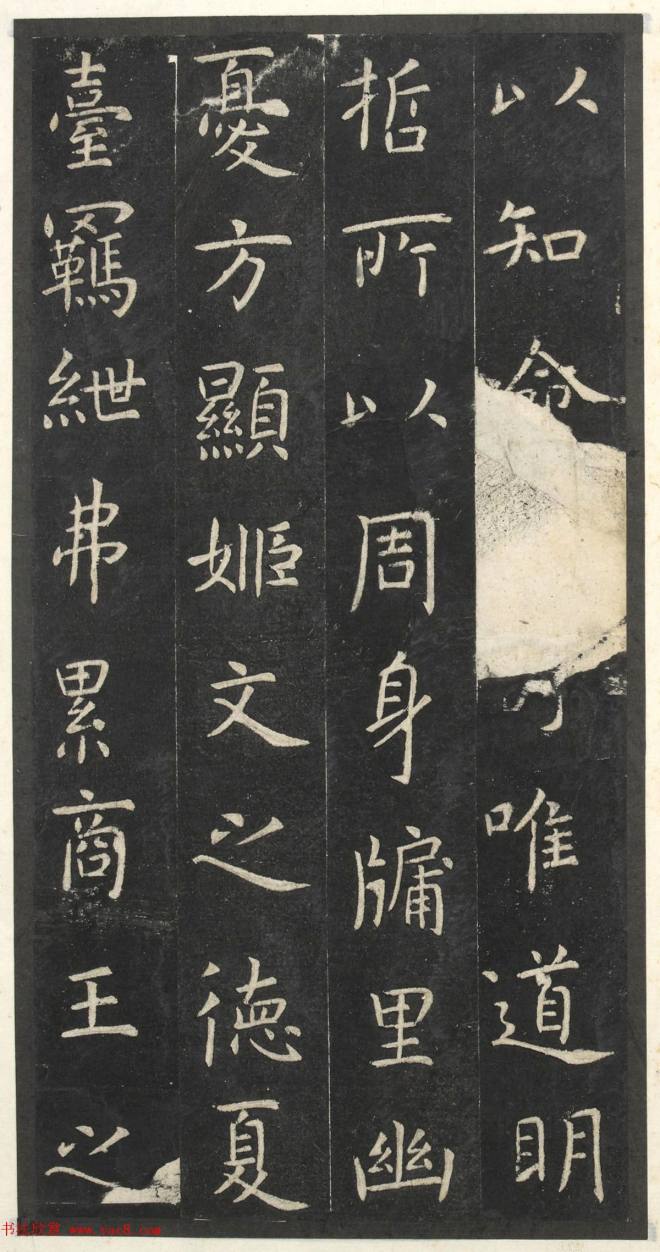 以知命唯道眀
哲所以周身牖里幽
憂方顯姬文之徳夏
臺羈紲弗累商王之
书法欣赏 www.yac8.com